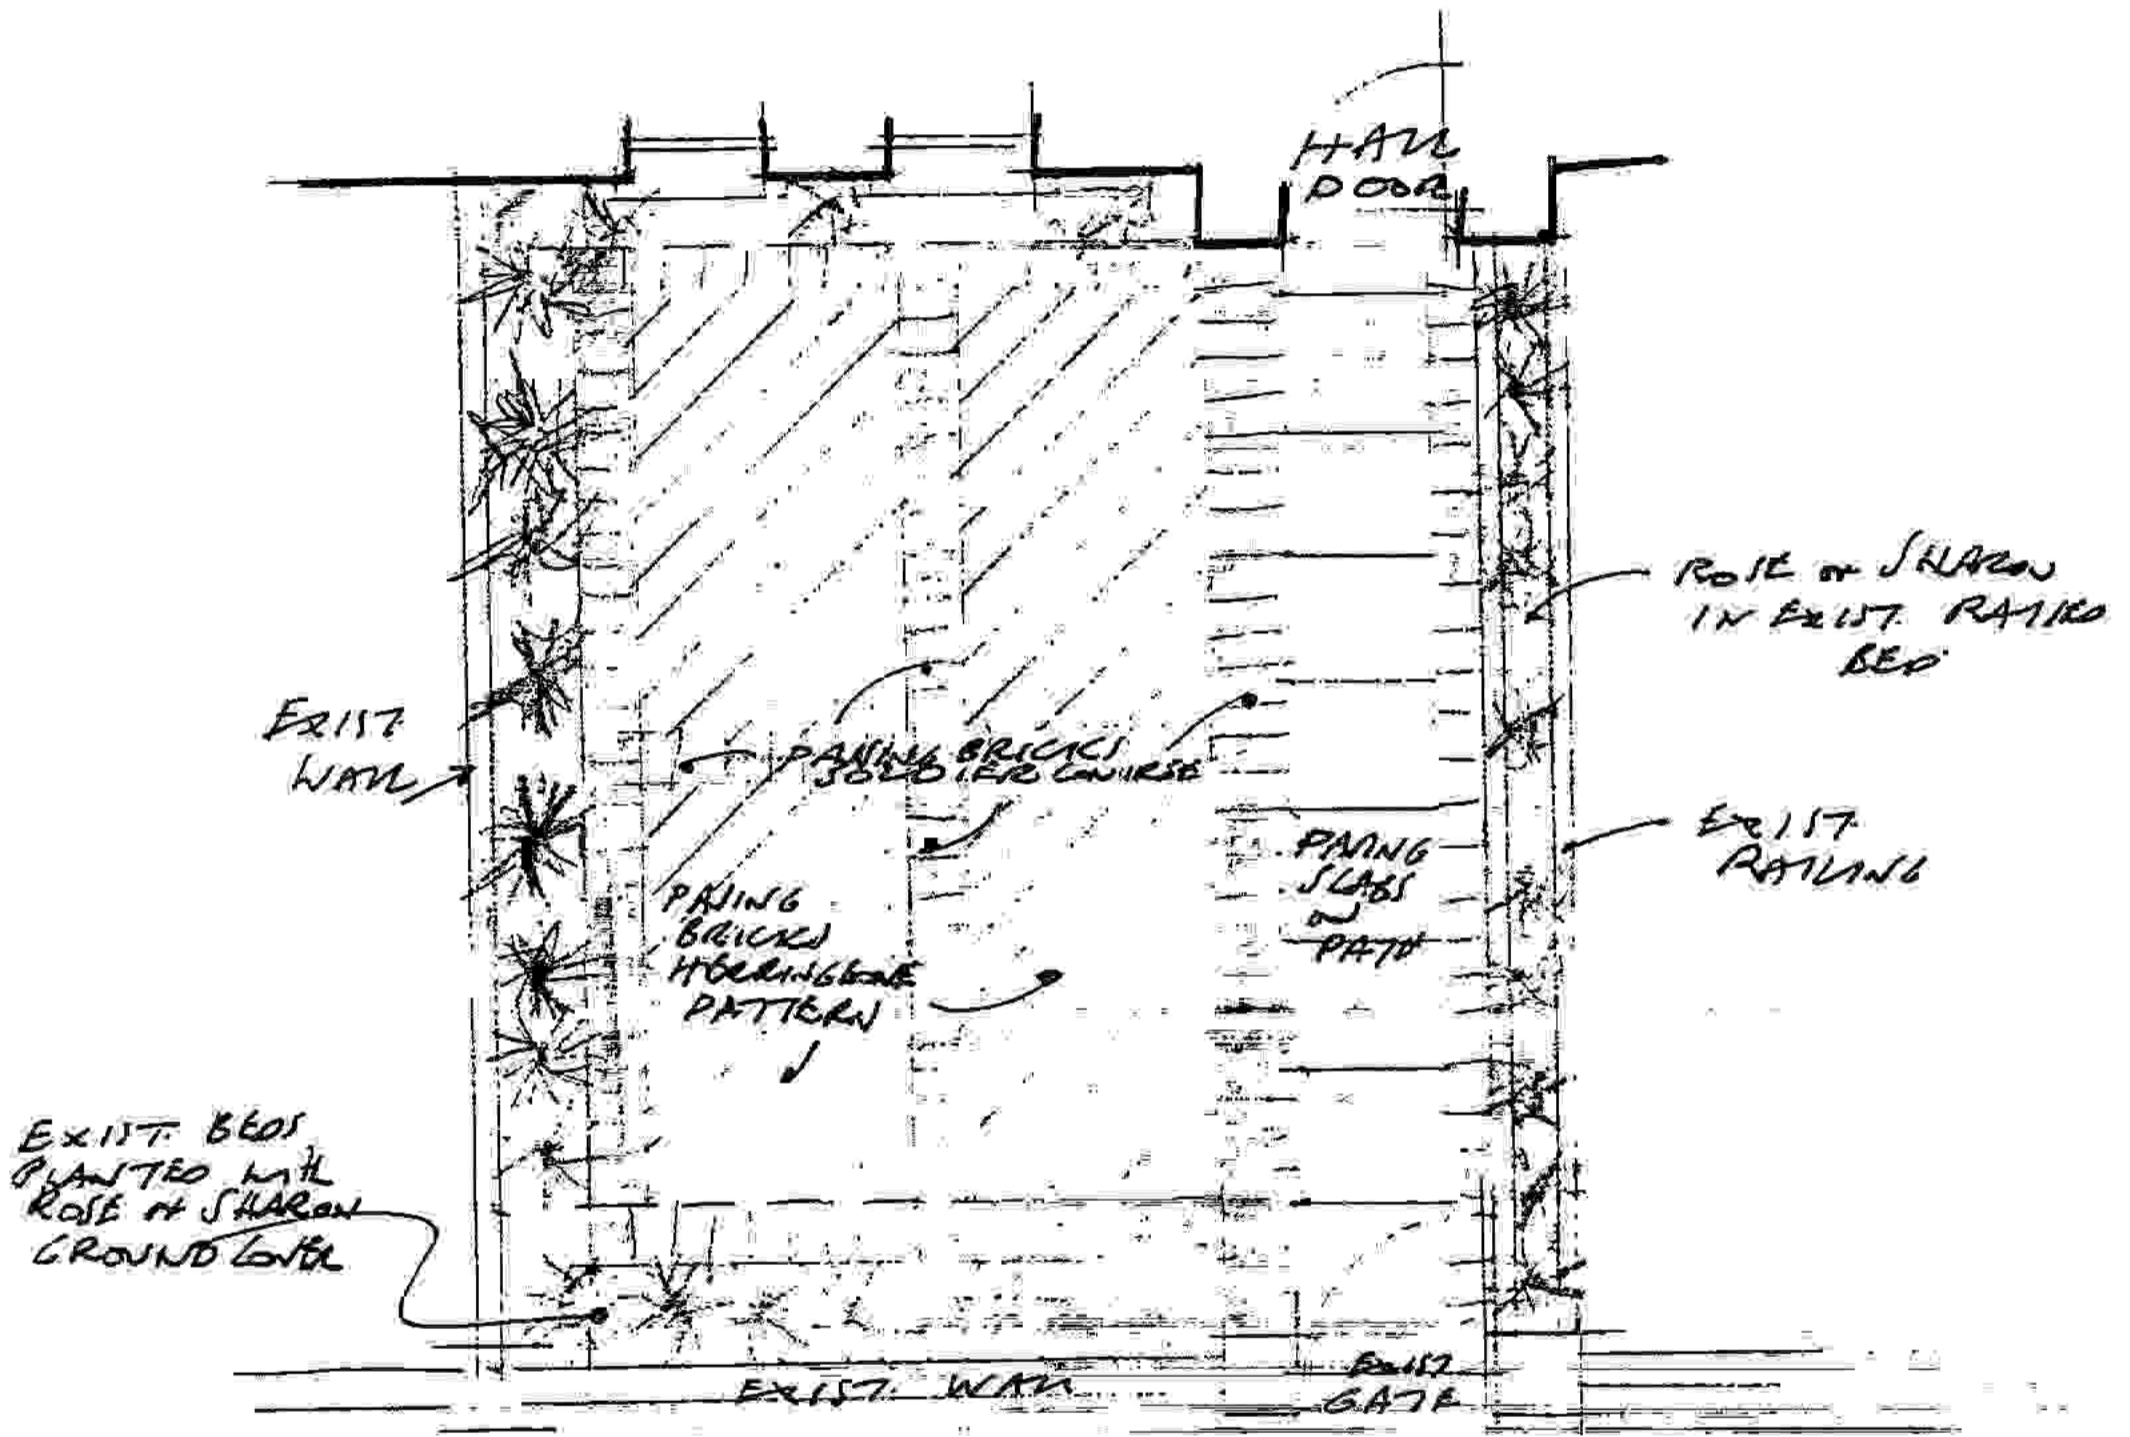 HALL
DOOR
ROSE OF SHARON
IN EXIST. RAISED
BED
EXIST.
WALL
PAVING BRICKS
SOLDIER COURSE
EXIST.
RAILING
PAVING
SLABS
ON
PATH
PAVING
BRICKS
HERRINGBONE
PATTERN
EXIST. BEDS
PLANTED WITH
ROSE OF SHARON
GROUND COVER
EXIST. WALL
EXIST
GATE